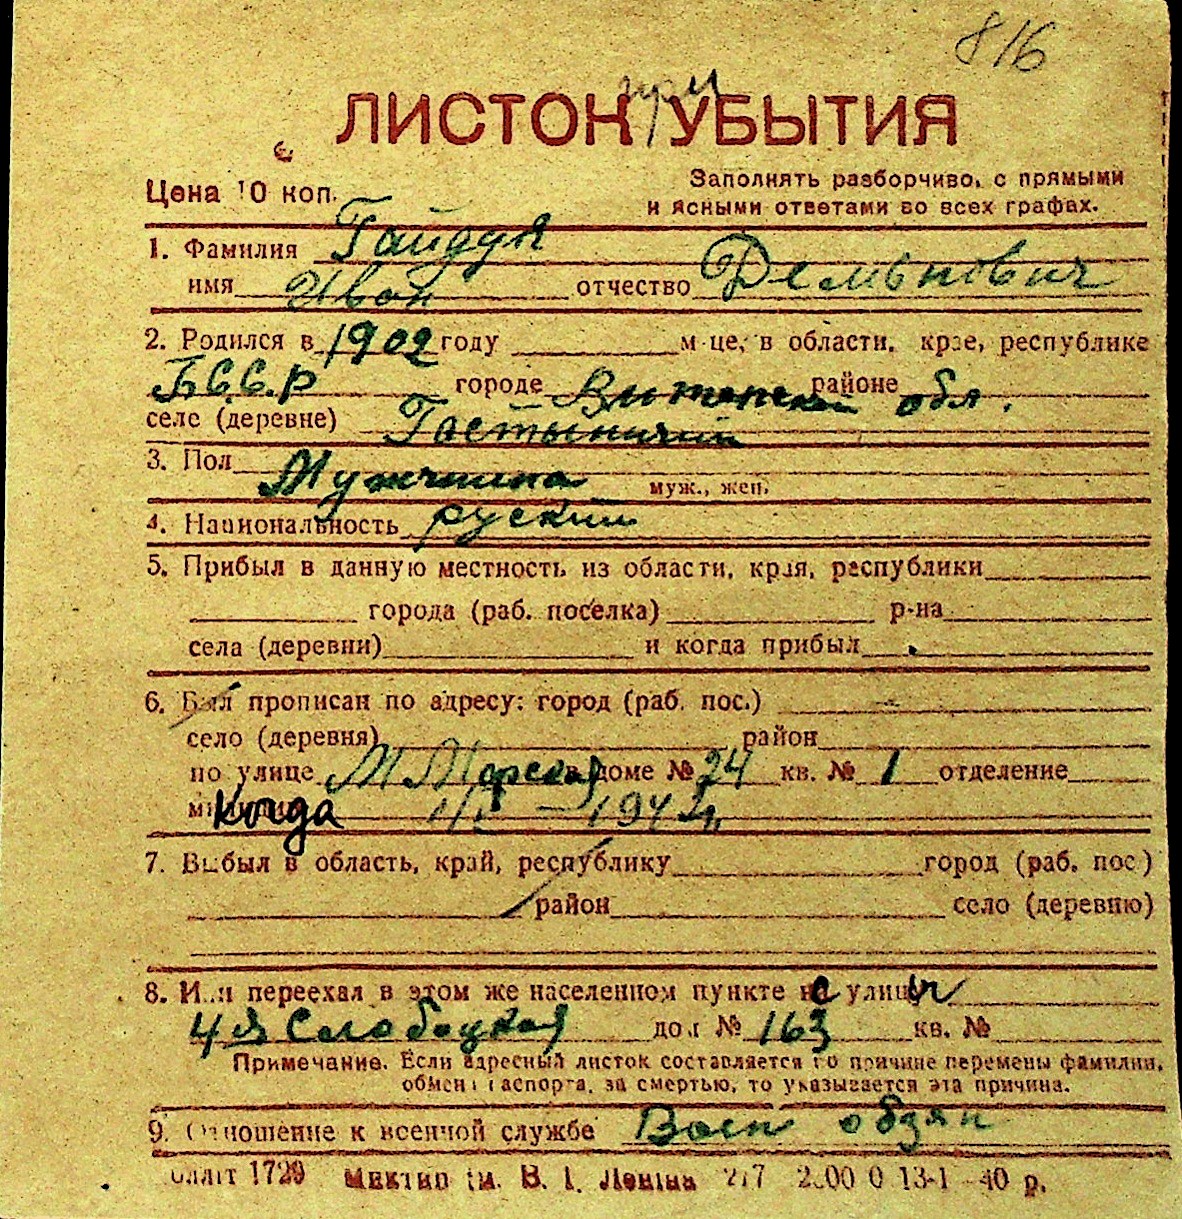 816
ЛИСТОК при УБЫТИЯ
Цена 10 коп.
Заполнять разборчиво, с прямыми
и ясными ответами во всех графах.
1. Фамилия Гайдук
имя Иван отчество Демьнович
2. Родился в 1902 году м-це, в области, крае, республике
БССР городе Витепской районе обл.
селе (деревне)
3. Пол Мужчина муж., жен.
4. Национальность руский
5. Прибыл в данную местность из области, края, республики
города (раб. поселка) р-на
села (деревни) и когда прибыл
6. Был прописан по адресу: город (раб. пос.)
село (деревня) район
по улице М Морская в доме № 24 кв. № 1 отделение
Когда
7. Выбыл в область, край, республику город (раб. пос.)
район село (деревню)
8. Или переехал в этом же населенном пункте с улицы
4 я Слободская дом № 163 кв. №
Примечание. Если адресный листок составляется по причине перемены фамилии,
обмена паспорта, за смертью, то указывается эта причина.
9. Отношение к военной службе Воен обзян
1729 В. І. Леніна 2.00 0 13-1-40 р.